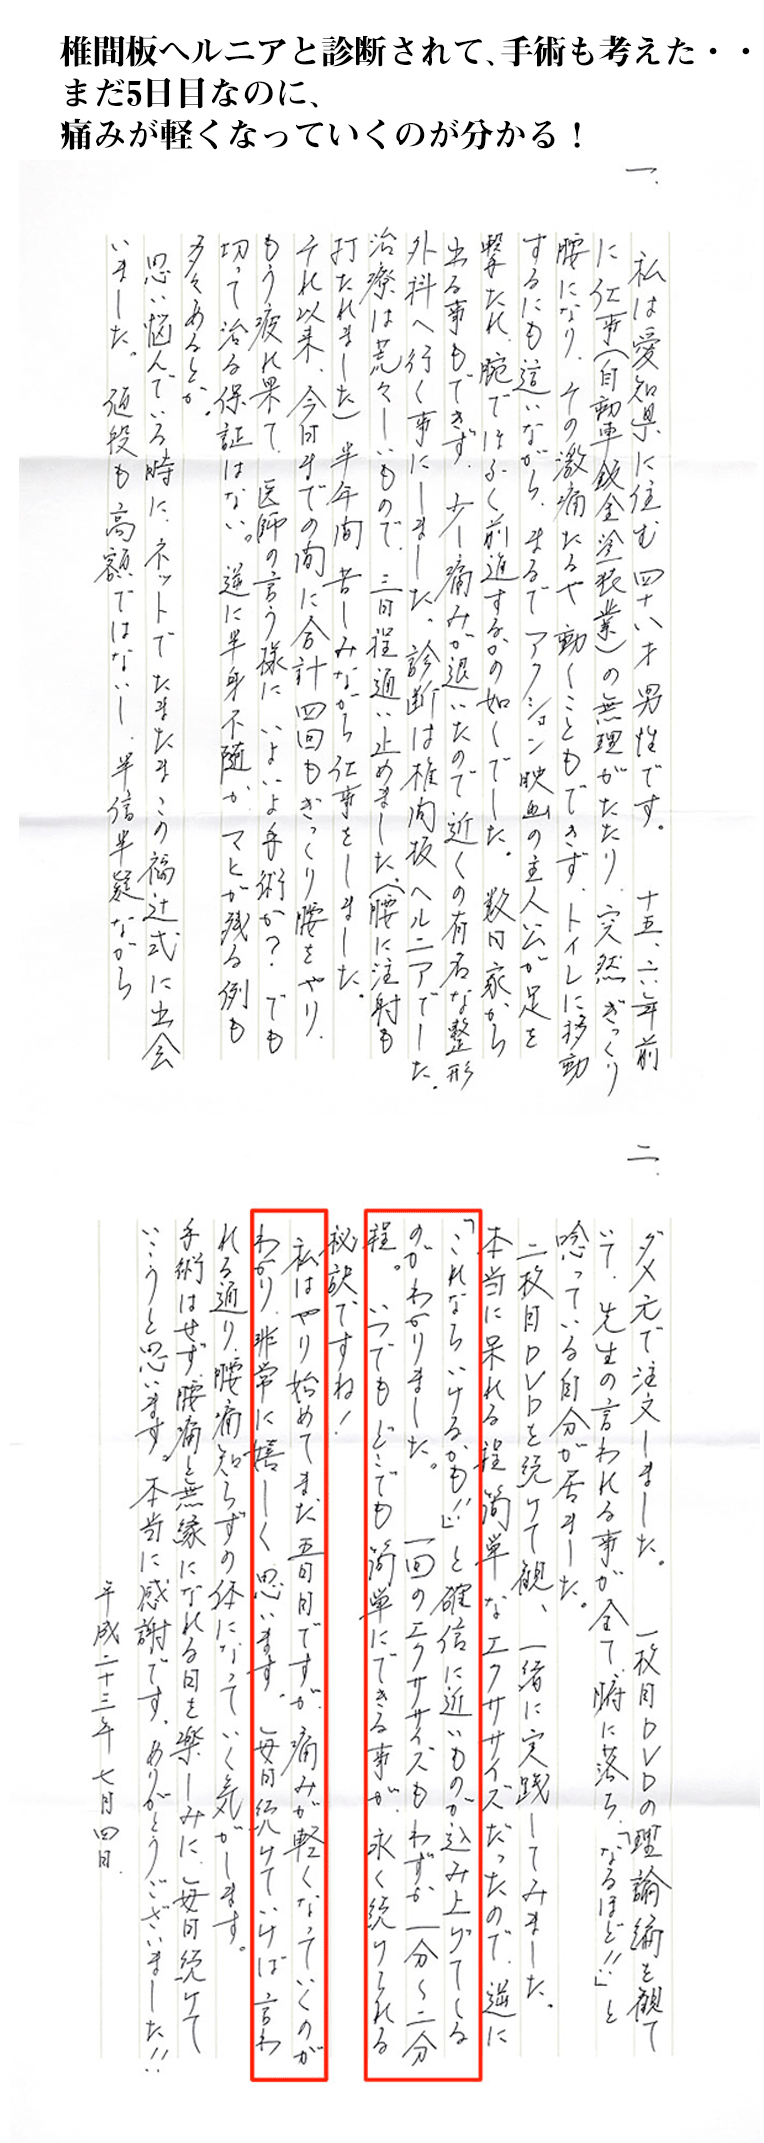 椎間板ヘルニアと診断されて、手術も考えた・・
まだ5日目なのに、
痛みが軽くなっていくのが分かる！
一、
私は愛知県に住む四十八才男性です。　十五、六年前
に仕事（自動車鈑金塗装業）の無理がたたり、突然ぎっくり
腰になり、その激痛たるや動くこともできず、トイレに移動
するにも這いながら、まるでアクション映画の主人公が足を
撃たれ、腕でほふく前進するかの如くでした。　数日家から
出る事もできず、少し痛みが退いたので近くの有名な整形
外科へ行く事にしました。診断は椎間板ヘルニアでした。
治療は荒々しいもので、三日程通い止めました。（腰に注射も
打たれました）半年間苦しみながら仕事をしました。
それ以来、今日までの間に合計四回もぎっくり腰をやり、
もう疲れ果て、医師の言う様に いよいよ手術か？ でも
切って治る保証はない。逆に半身不随か、マヒが残る例も
多々あるとか。
思い悩んでいる時に、ネットでたまたまこの福辻式に出会
いました。　値段も高額ではないし、半信半疑ながら
二、
ダメ元で注文しました。　一枚目DVDの理論編を観て
いて、先生の言われる事が全て、腑に落ち、「なるほど!!」と
唸っている自分が居ました。
二枚目DVDを続けて観、一緒に実践してみました。
本当に呆れる程簡単なエクササイズだったので、逆に
「これならいけるかも!!」と確信に近いものが込み上げてくる
のがわかりました。　一回のエクササイズもわずか一分〜二分
程。　いつでもどこでも簡単にできる事が、永く続けられる
秘訣ですね！
私はやり始めてまだ五日目ですが、痛みが軽くなっていくのが
わかり、非常に嬉しく思います。　毎日続けていけば 言わ
れる通り、腰痛知らずの体になっていく気がします。
手術はせず、腰痛と無縁になれる日を楽しみに、毎日続けて
いこうと思います。本当に感謝です。ありがとうございました!!
平成二十三年七月四日、